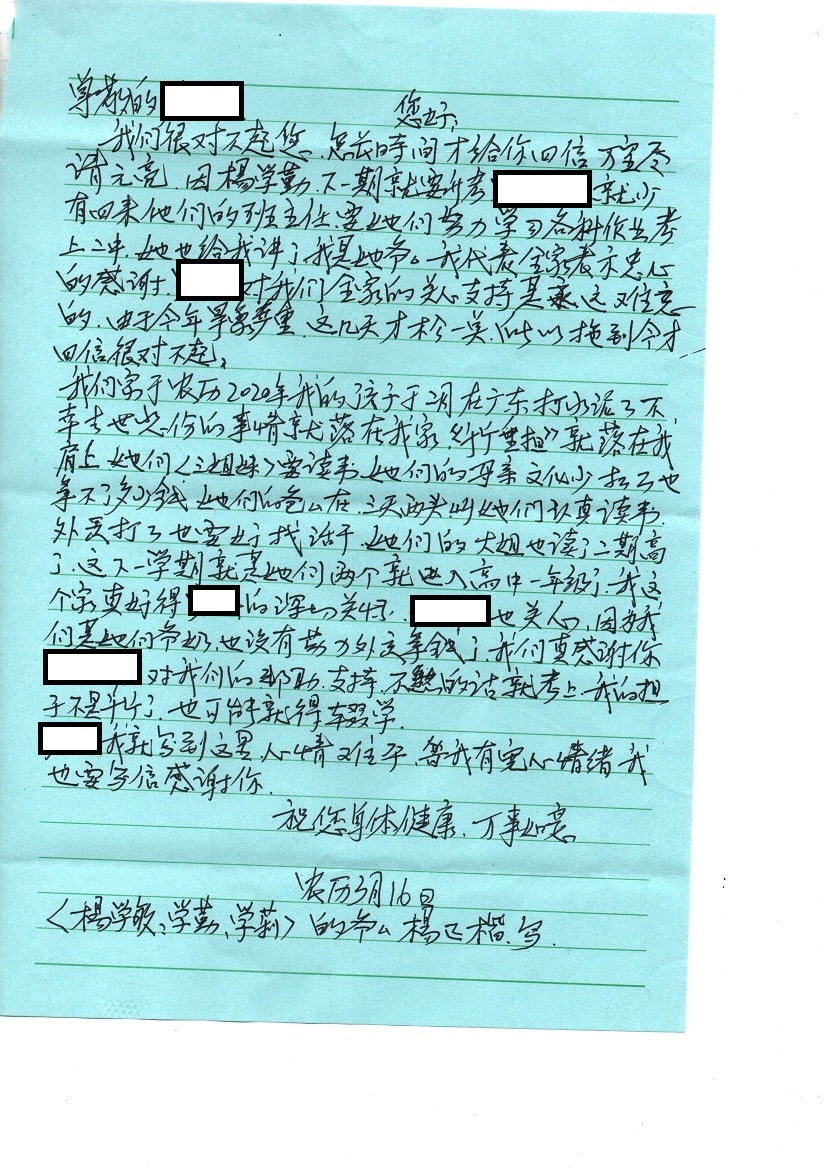 尊敬的
您好:
我们很对不起您.怎长时间才给你回信.万望尽
请元亮.因楊学勤.下一期就要升考 就少
有回来他们的班主任.要她们努力学习各科作业考
上二中.她也给我讲了我是她爷。我代表全家表示忠心
的感谢! 对我们全家的关心支持是永远难忘
的.由于今年旱象严重.这几天才 一点.所以拖到今才
回信很对不起。
我们家于农历2020年我的孩子于二月在广东打水泥工不
幸去世 份的事情就落在我家《千斤重担》就落在我
肩上.她们〈三姐妹〉要读书.她们的母亲文化少打工也
拿不了多少钱.她们的爸么在.三天两头叫她们认真读书.
外面打工也要好找活干.她们的大姐也读了二期高
了.这下一学期就是她们两个就进入高中一年级了.我这
个家真好得 的深切关怀. 也关心.因为我
们是她们爷奶.也没有劳力外这拿钱了.我们真感谢你
对我们的帮助.支持.不然的话就考上.我的担
子不是千斤了.也可能就得辍学.
我就写到这里.心情难于平.等我有宽心情绪我
也要写信感谢你.
祝您身体健康.万事如意
农历3月16日
〈楊学敏;学勤、学莉〉的爷么楊正楷.写.